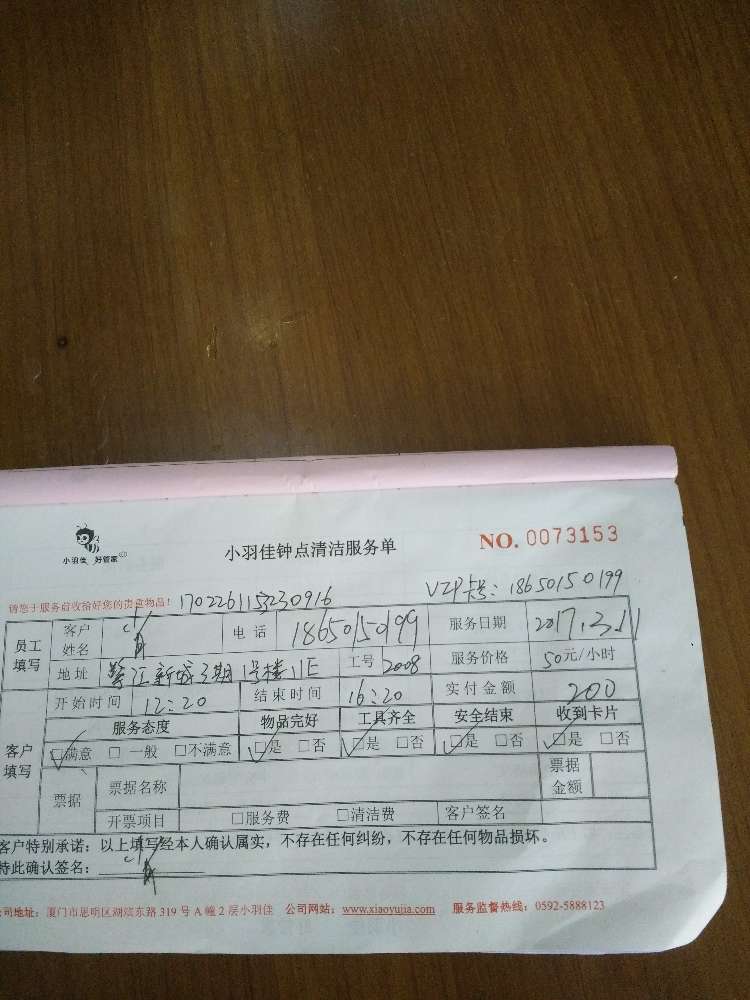 小羽佳 好管家
小羽佳钟点清洁服务单
NO. 0073153
请您于服务前收拾好您的贵重物品! 170226115230916 VIP卡号: 18650150199
员工填写 客户姓名 电话 18650150199 服务日期 2017.3.11
地址 新城3期1号楼11E 工号 2008 服务价格 50元/小时
客户填写 开始时间 12:20 结束时间 16:20 实付金额 200
服务态度 物品完好 工具齐全 安全结束 收到卡片
☑满意 □一般 □不满意 ☑是 □否 ☑是 □否 ☑是 □否 ☑是 □否
票据 票据名称 票据金额
开票项目 □服务费 □清洁费 客户签名
客户特别承诺: 以上填写经本人确认属实,不存在任何纠纷,不存在任何物品损坏。
特此确认签名:
公司地址: 厦门市思明区湖滨东路 319 号 A 幢 2 层小羽佳 公司网站: www.xiaoyujia.com 服务监督热线: 0592-5888123